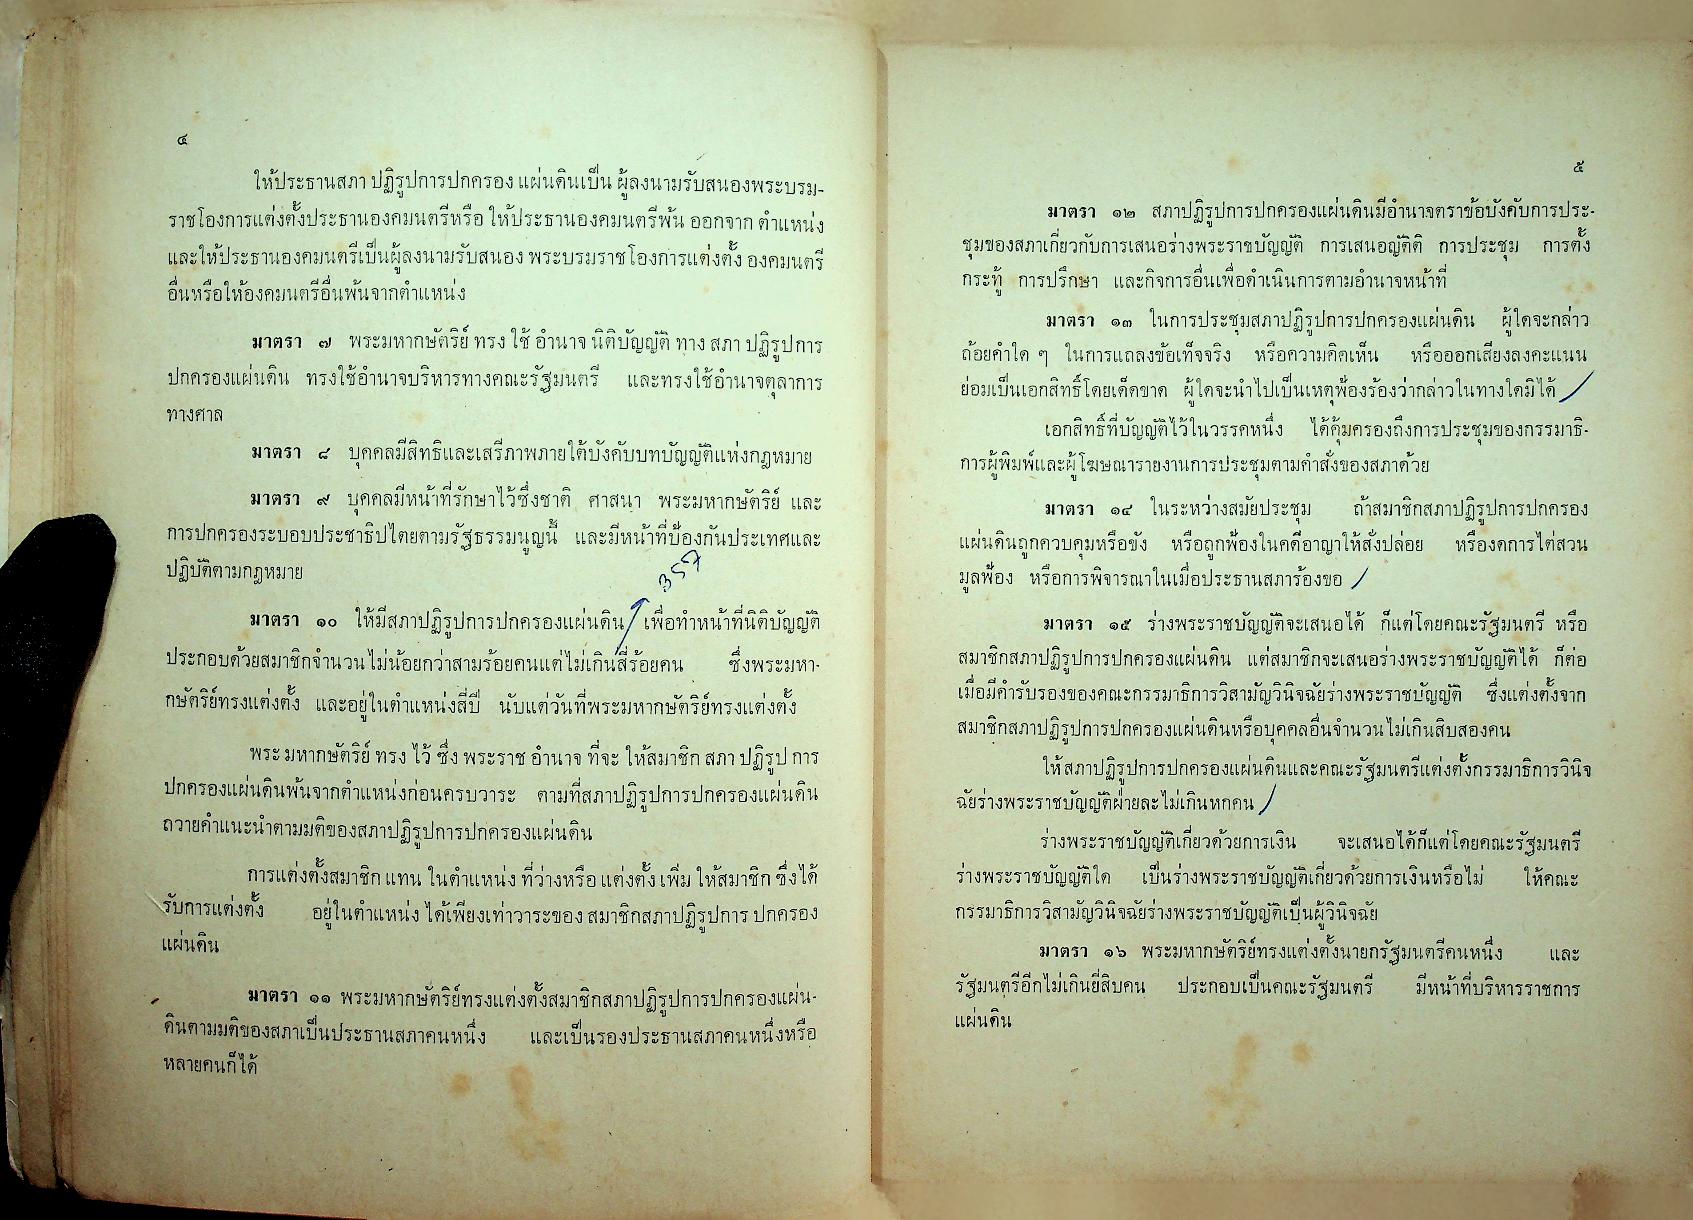 ๔
ให้ประธานสภา ปฏิรูปการปกครอง แผ่นดินเป็น ผู้ลงนามรับสนองพระบรม-
ราชโองการแต่งตั้งประธานองคมนตรีหรือ ให้ประธานองคมนตรีพ้น ออกจาก ตำแหน่ง
และให้ประธานองคมนตรีเป็นผู้ลงนามรับสนอง พระบรมราชโองการแต่งตั้ง องคมนตรี
อื่นหรือให้องคมนตรีอื่นพ้นจากตำแหน่ง
มาตรา ๗ พระมหากษัตริย์ ทรง ใช้ อำนาจ นิติบัญญัติ ทาง สภา ปฏิรูปการ
ปกครองแผ่นดิน ทรงใช้อำนาจบริหารทางคณะรัฐมนตรี และทรงใช้อำนาจตุลาการ
ทางศาล
มาตรา ๘ บุคคลมีสิทธิและเสรีภาพภายใต้บังคับบทบัญญัติแห่งกฎหมาย
มาตรา ๙ บุคคลมีหน้าที่รักษาไว้ซึ่งชาติ ศาสนา พระมหากษัตริย์ และ
การปกครองระบอบประชาธิปไตยตามรัฐธรรมนูญนี้ และมีหน้าที่ป้องกันประเทศและ
ปฏิบัติตามกฎหมาย
มาตรา ๑๐ ให้มีสภาปฏิรูปการปกครองแผ่นดิน เพื่อทำหน้าที่นิติบัญญัติ
ประกอบด้วยสมาชิกจำนวนไม่น้อยกว่าสามร้อยคนแต่ไม่เกินสี่ร้อยคน ซึ่งพระมหา-
กษัตริย์ทรงแต่งตั้ง และอยู่ในตำแหน่งสี่ปี นับแต่วันที่พระมหากษัตริย์ทรงแต่งตั้ง
พระ มหากษัตริย์ ทรง ไว้ ซึ่ง พระราช อำนาจ ที่จะ ให้สมาชิก สภา ปฏิรูป การ
ปกครองแผ่นดินพ้นจากตำแหน่งก่อนครบวาระ ตามที่สภาปฏิรูปการปกครองแผ่นดิน
ถวายคำแนะนำตามมติของสภาปฏิรูปการปกครองแผ่นดิน
การแต่งตั้งสมาชิก แทน ในตำแหน่ง ที่ว่างหรือ แต่งตั้ง เพิ่ม ให้สมาชิก ซึ่งได้
รับการแต่งตั้ง อยู่ในตำแหน่ง ได้เพียงเท่าวาระของ สมาชิกสภาปฏิรูปการ ปกครอง
แผ่นดิน
มาตรา ๑๑ พระมหากษัตริย์ทรงแต่งตั้งสมาชิกสภาปฏิรูปการปกครองแผ่น-
ดินตามมติของสภาเป็นประธานสภาคนหนึ่ง และเป็นรองประธานสภาคนหนึ่งหรือ
หลายคนก็ได้
๕
มาตรา ๑๒ สภาปฏิรูปการปกครองแผ่นดินมีอำนาจตราข้อบังคับการประ-
ชุมของสภาเกี่ยวกับการเสนอร่างพระราชบัญญัติ การเสนอญัตติ การประชุม การตั้ง
กระทู้ การปรึกษา และกิจการอื่นเพื่อดำเนินการตามอำนาจหน้าที่
มาตรา ๑๓ ในการประชุมสภาปฏิรูปการปกครองแผ่นดิน ผู้ใดจะกล่าว
ถ้อยคำใด ๆ ในการแถลงข้อเท็จจริง หรือความคิดเห็น หรือออกเสียงลงคะแนน
ย่อมเป็นเอกสิทธิ์โดยเด็ดขาด ผู้ใดจะนำไปเป็นเหตุฟ้องร้องว่ากล่าวในทางใดมิได้
เอกสิทธิ์ที่บัญญัติไว้ในวรรคหนึ่ง ได้คุ้มครองถึงการประชุมของกรรมาธิ-
การผู้พิมพ์และผู้โฆษณารายงานการประชุมตามคำสั่งของสภาด้วย
มาตรา ๑๔ ในระหว่างสมัยประชุม ถ้าสมาชิกสภาปฏิรูปการปกครอง
แผ่นดินถูกควบคุมหรือขัง หรือถูกฟ้องในคดีอาญาให้สั่งปล่อย หรืองดการไต่สวน
มูลฟ้อง หรือการพิจารณาในเมื่อประธานสภาร้องขอ
มาตรา ๑๕ ร่างพระราชบัญญัติจะเสนอได้ ก็แต่โดยคณะรัฐมนตรี หรือ
สมาชิกสภาปฏิรูปการปกครองแผ่นดิน แต่สมาชิกจะเสนอร่างพระราชบัญญัติได้ ก็ต่อ
เมื่อมีคำรับรองของคณะกรรมาธิการวิสามัญวินิจฉัยร่างพระราชบัญญัติ ซึ่งแต่งตั้งจาก
สมาชิกสภาปฏิรูปการปกครองแผ่นดินหรือบุคคลอื่นจำนวนไม่เกินสิบสองคน
ให้สภาปฏิรูปการปกครองแผ่นดินและคณะรัฐมนตรีแต่งตั้งกรรมาธิการวินิจ
ฉัยร่างพระราชบัญญัติฝ่ายละไม่เกินหกคน
ร่างพระราชบัญญัติเกี่ยวด้วยการเงิน จะเสนอได้ก็แต่โดยคณะรัฐมนตรี
ร่างพระราชบัญญัติใด เป็นร่างพระราชบัญญัติเกี่ยวด้วยการเงินหรือไม่ ให้คณะ
กรรมาธิการวิสามัญวินิจฉัยร่างพระราชบัญญัติเป็นผู้วินิจฉัย
มาตรา ๑๖ พระมหากษัตริย์ทรงแต่งตั้งนายกรัฐมนตรีคนหนึ่ง และ
รัฐมนตรีอีกไม่เกินยี่สิบคน ประกอบเป็นคณะรัฐมนตรี มีหน้าที่บริหารราชการ
แผ่นดิน